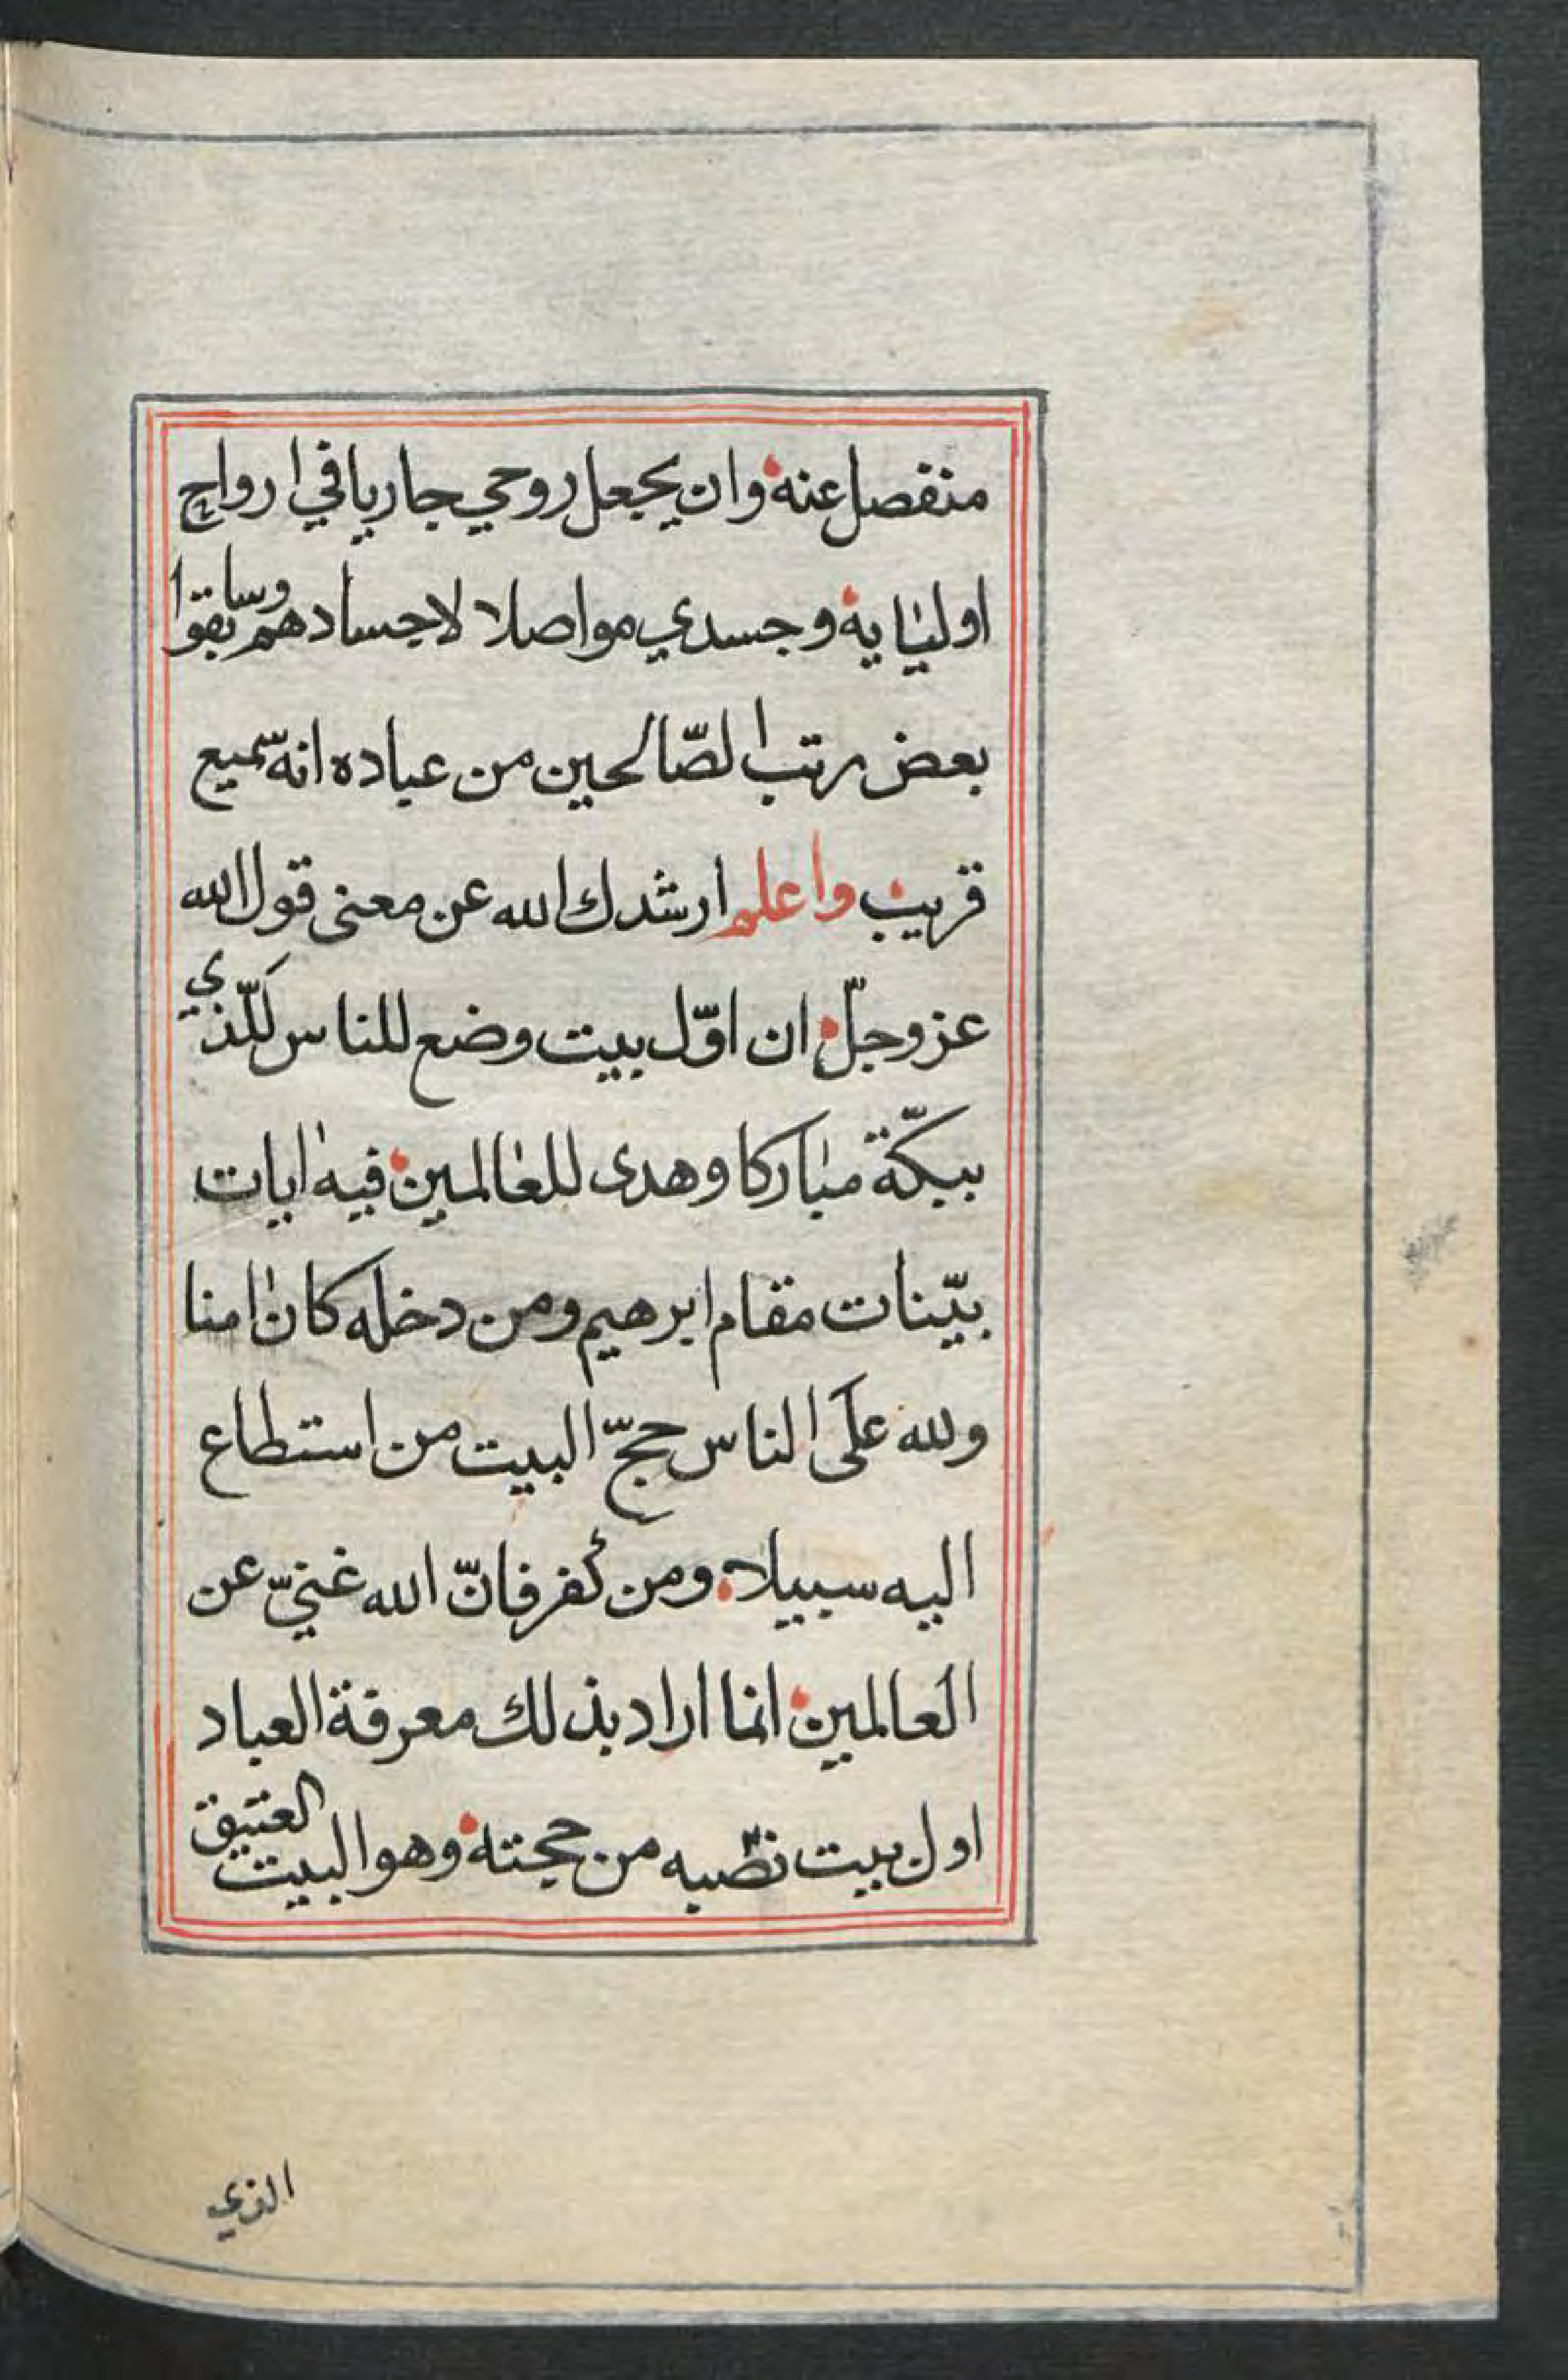 منفصل عنه وان يجعل روحي جاريا في ارواح
اوليايه وجسدي مواصلا لاجسادهم وسابقوا
بعض رتب الصّالحين من عباده انه سميع
قريب واعلم ارشدك الله عن معنى قول الله
عز وجلّ ان اوّل بيت وضع للناس للّذي
ببكّة مباركا وهدى للعالمين فيه ايات
بيّنات مقام ابرهيم ومن دخله كان امنا
ولله على الناس حجّ البيت من استطاع
اليه سبيلا ومن كفر فانّ الله غنيّ عن
العالمين انما اراد بذلك معرفة العباد
اول بيت نصّبه من حجته وهو البيت العتيق
الذي